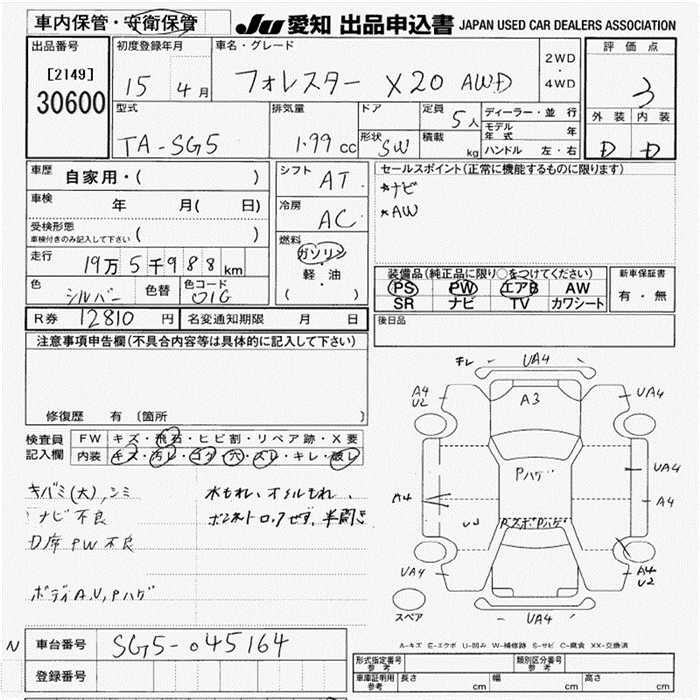 車内保管・守衛保管
JU 愛知 出品申込書 JAPAN USED CAR DEALERS ASSOCIATION
出品番号
[2149]
30600
初度登録年月
15 4月
車名・グレード
フォレスター X20 AWD
2WD
・
4WD
評価点
3
外装 内装
D D
型式
TA-SG5
排気量
1.99 cc
ドア
形状 SW
定員 5人
積載 kg
ディーラー・並行
モデル年式 年
ハンドル 左・右
車歴 自家用・( )
車検 年 月( 日)
受検形態
車検付きのみ記入して下さい ( )
走行 19万5千988km
色 シルバー 色替
色コード 01G
シフト AT
冷房 AC
燃料
ガソリン
軽・油
( )
セールスポイント(正常に機能するものに限ります)
*ナビ
*AW
装備品(純正品に限り○をつけてください)
PS PW エアB AW
SR ナビ TV カワシート
新車保証書
有・無
R券 12810 円 名変通知期限 月 日
後日品
注意事項申告欄(不具合内容等は具体的に記入して下さい)
修復歴 有 〔箇所 〕
検査員
記入欄
FW キズ・飛石・ヒビ割・リペア跡・X要
内装 キズ・汚レ・コゲ・穴・スレ・キレ・破レ
キバミ(大)、シミ
ナビ不良
D席PW不良
ボディA.U,Pハゲ
水もれ、オイルもれ、
ボンネットロックせず、半開き
キレ UA4
A4
U2
A3
UA4
Pハゲ
UA4
A4
A4
U3
RスポPハゲ
UA4
A4
U2
スペア
UA4
A-キズ E-エクボ U-凹み W-補修跡 S-サビ C-腐食 XX-交換済
N 車台番号 SG5-045164
登録番号
形式指定番号
参考
類別区分番号
参考
車庫証明用
参考
長さ cm 幅 cm 高さ cm